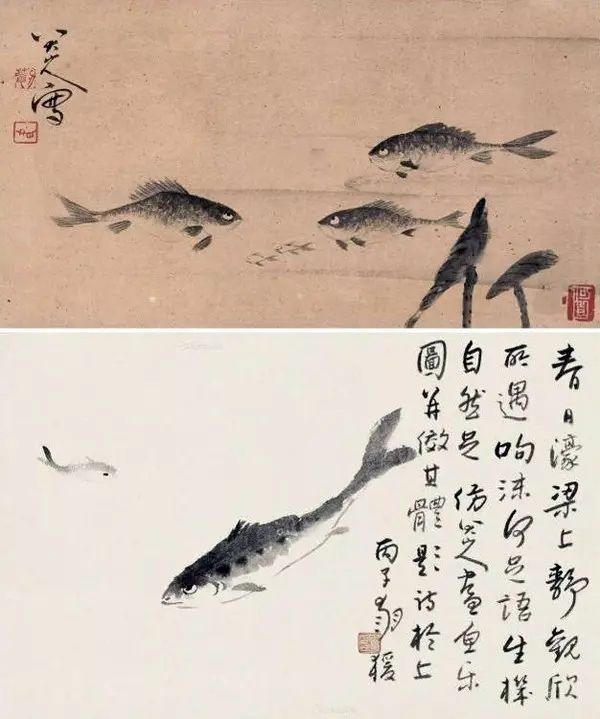 八大山人寫
春日濠梁上靜觀欣
所遇呴沫何足語生機
自然足仿八大山人畫魚樂
圖并倣其體題詩於上
丙子